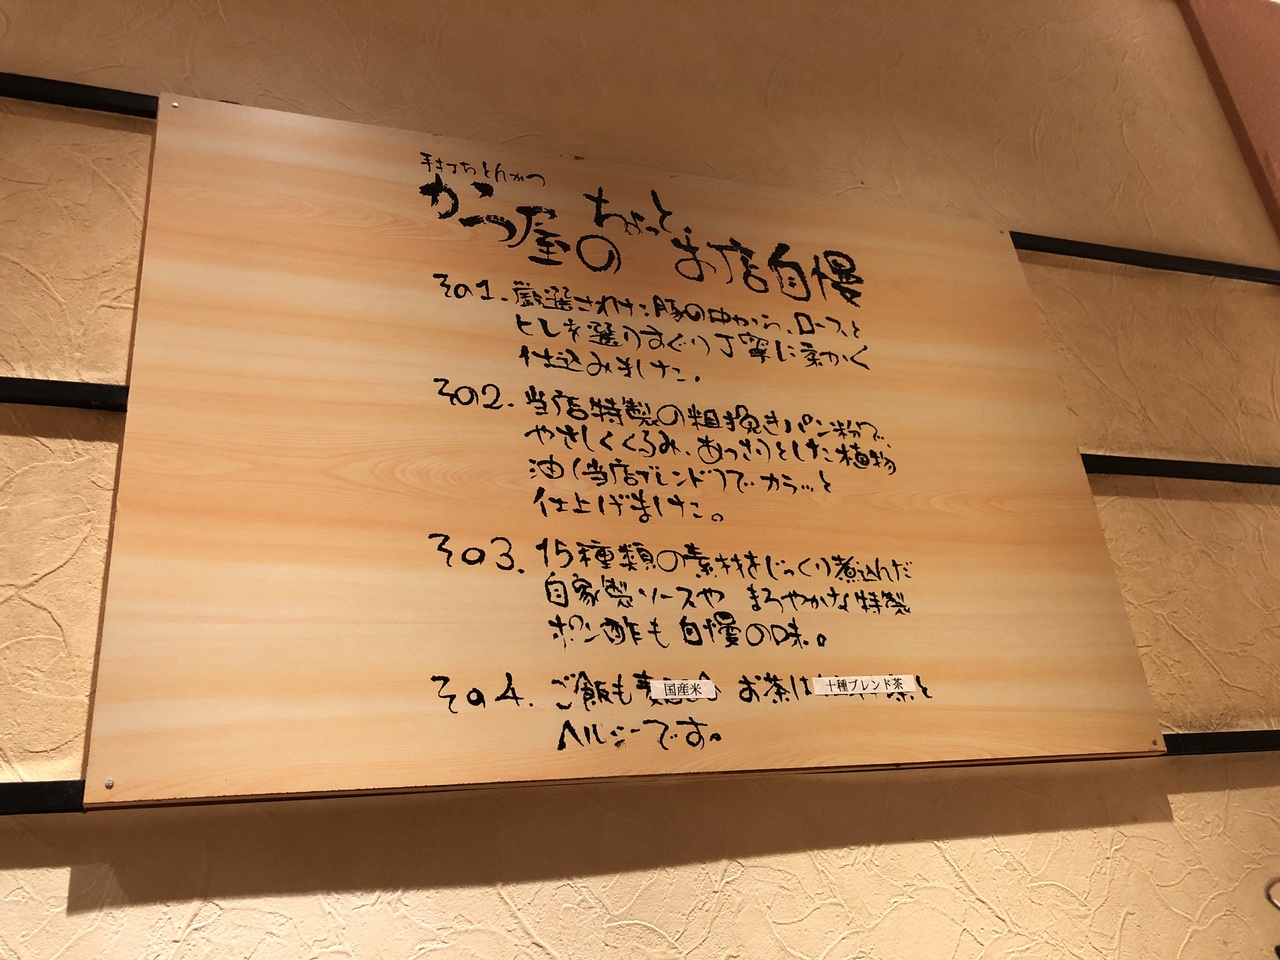 手打ちとんかつ
かつ屋の ちょっと、お店自慢
その1. 厳選された豚の中から、ロースを
としを選りすぐり丁寧に柔かく
仕込みました。
その2. 当店特製の粗挽きパン粉で、
やさしくくるみ、あっさりとした植物
油(当店ブレンド)でカラッと
仕上げました。
その3. 15種類の素材をじっくり煮込んだ
自家製ソースや まろやかな特製
ポン酢も自慢の味。
その4. ご飯も 国産米 お茶は 十種ブレンド茶 と
ヘルシーです。